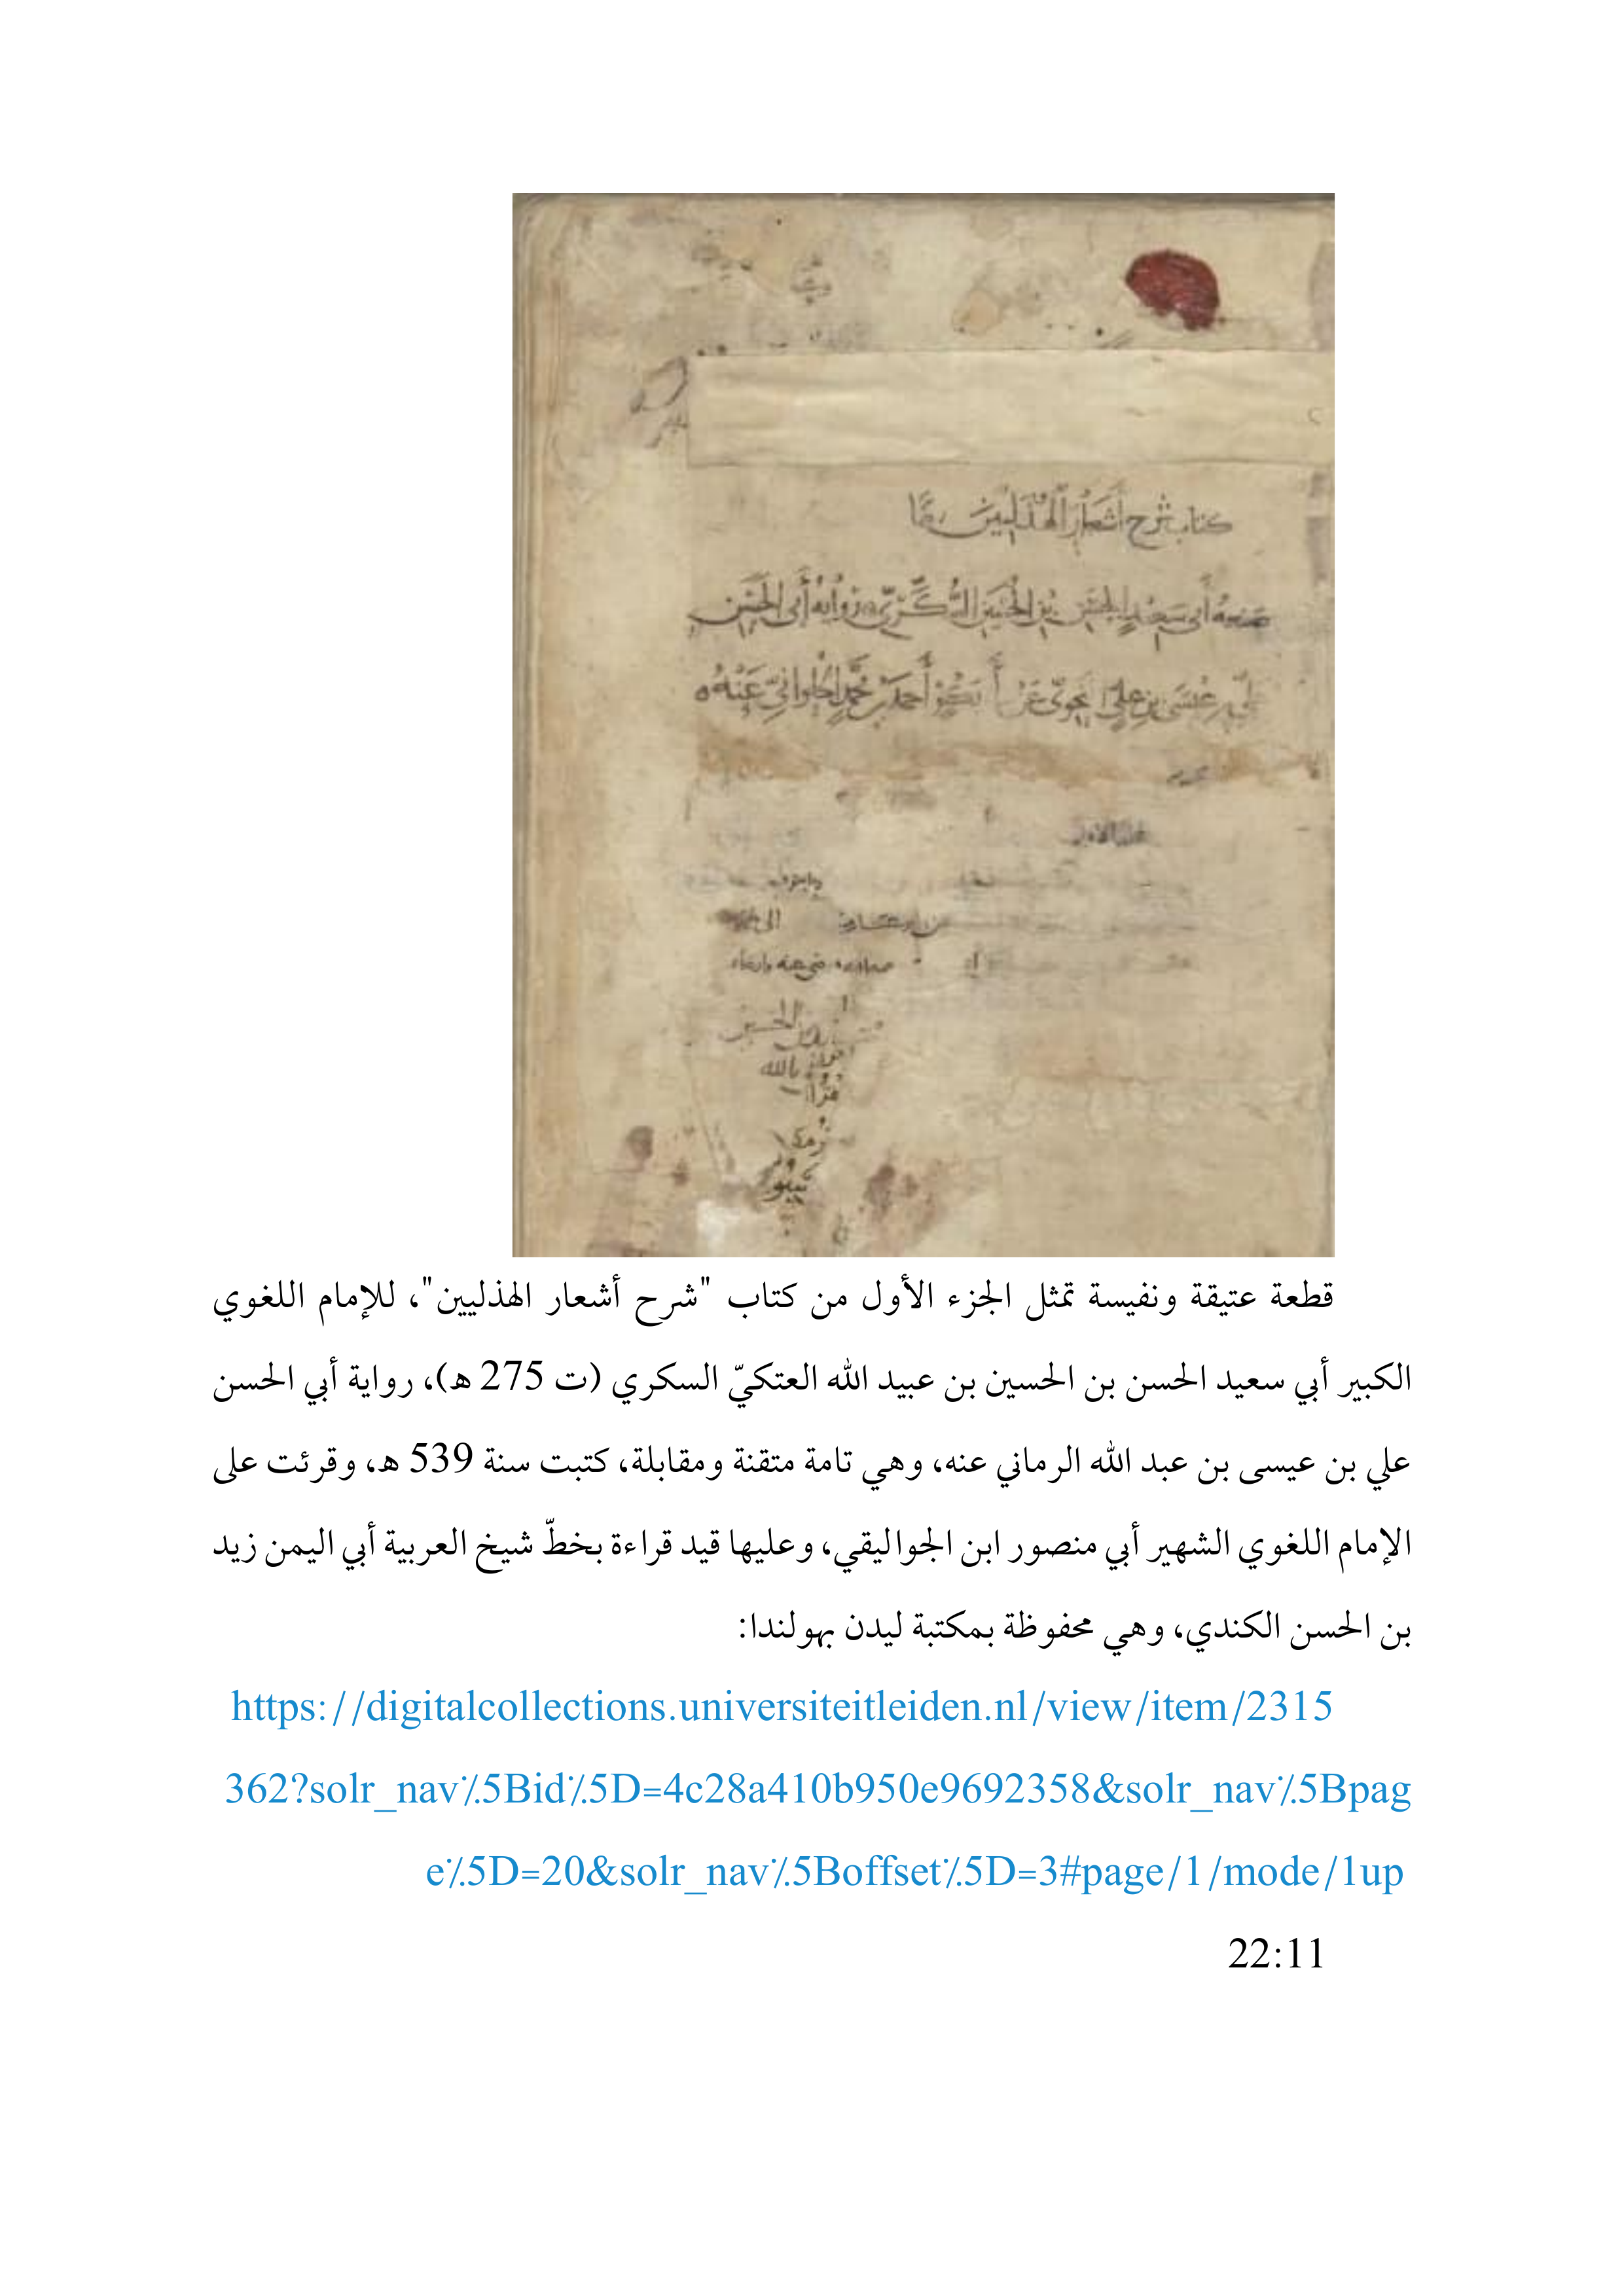 كتاب شرح أشعار الهذليين مما
صنعه أبي سعيد الحسن بن الحسين السكري رواية أبي الحسن
علي بن عيسى بن علي النحوي عن أبي بكر أحمد بن محمد الحلواني عنه
قطعة عتيقة ونفيسة تمثل الجزء الأول من كتاب "شرح أشعار الهذليين"، للإمام اللغوي
الكبير أبي سعيد الحسن بن الحسين بن عبيد الله العتكيّ السكري (ت 275 ه)، رواية أبي الحسن
علي بن عيسى بن عبد الله الرماني عنه، وهي تامة متقنة ومقابلة، كتبت سنة 539 ه، وقرئت على
الإمام اللغوي الشهير أبي منصور ابن الجواليقي، وعليها قيد قراءة بخطّ شيخ العربية أبي اليمن زيد
بن الحسن الكندي، وهي محفوظة بمكتبة ليدن بهولندا:
https://digitalcollections.universiteitleiden.nl/view/item/2315
362?solr_nav٪5Bid٪5D=4c28a410b950e9692358&solr_nav٪5Bpag
e٪5D=20&solr_nav٪5Boffset٪5D=3#page/1/mode/1up
22:11